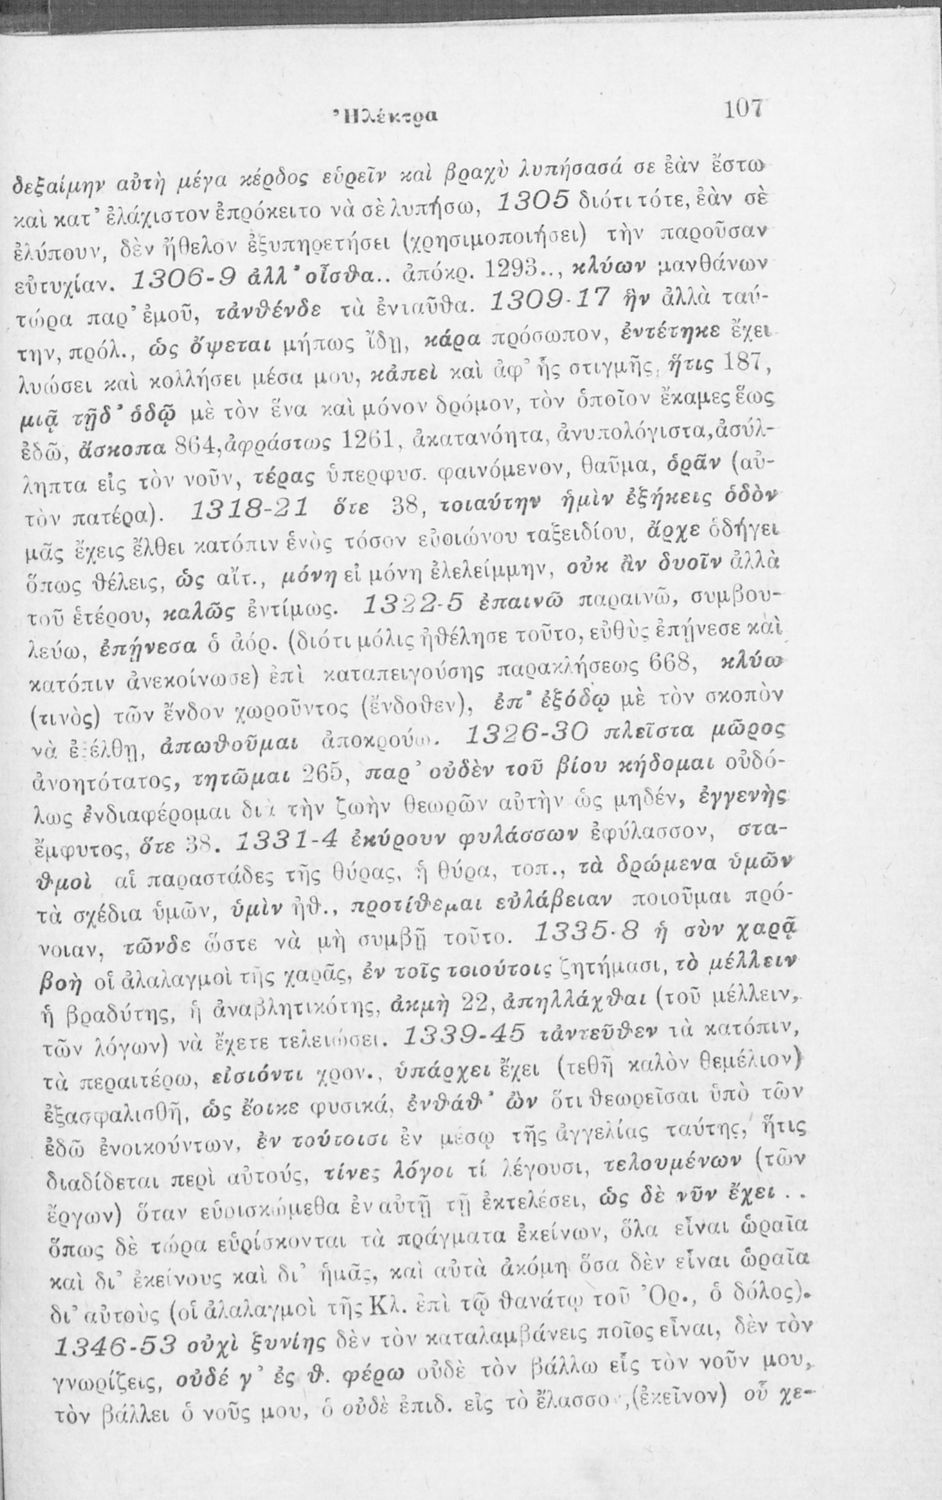 Ἠλέκτρα 107
δεξαίμην αὐτὴ μέγα κέρδος εὑρεῖν καὶ βραχὺ λυπήσασά σε ἐὰν ἔστω
καὶ κατ' ἐλάχιστον ἐπρόκειτο νὰ σὲ λυπήσω, 1305 διότι τότε, ἐὰν σὲ
ἐλύπουν, δὲν ἤθελον ἐξυπηρετήσει (χρησιμοποιήσει) τὴν παροῦσαν
εὐτυχίαν. 1306-9 ἀλλ' οἶσθα.. ἀπόκρ. 1293.., κλύων μανθάνων
τώρα παρ' ἐμοῦ, τἀνθένδε τὰ ἐνταῦθα. 1309-17 ἣν ἀλλὰ ταύ-
την, πρόλ., ὡς ὄψεται μήπως ἴδῃ, κάρα πρόσωπον, ἐντέτηκε ἔχει
λυώσει καὶ κολλήσει μέσα μου, κἀπεὶ καὶ ἀφ' ἧς στιγμῆς, ἥτις 187,
μιᾷ τῇδ' ὁδῷ μὲ τὸν ἕνα καὶ μόνον δρόμον, τὸν ὁποῖον ἔκαμες ἕως
ἐδῶ, ἄσκοπα 864, ἀφράστως 1261, ἀκατανόητα, ἀνυπολόγιστα, ἀσύλ-
ληπτα εἰς τὸν νοῦν, τέρας ὑπερφυσ. φαινόμενον, θαῦμα, ὁρᾶν (αὐ-
τὸν πατέρα). 1318-21 ὅτε 38, τοιαύτην ἡμὶν ἐξήκεις ὁδὸν
μᾶς ἔχεις ἔλθει κατόπιν ἑνὸς τόσον εὐοιώνου ταξειδίου, ἄρχε ὁδήγει
ὅπως θέλεις, ὡς αἴτ., μόνη εἰ μόνη ἐλελείμμην, οὐκ ἂν δυοῖν ἀλλὰ
τοῦ ἑτέρου, καλῶς ἐντίμως. 1322-5 ἐπαινῶ παραινῶ, συμβου-
λεύω, ἐπῄνεσα ὁ ἀόρ. (διότι μόλις ἠθέλησε τοῦτο, εὐθὺς ἐπῄνεσε καὶ
κατόπιν ἀνεκοίνωσε) ἐπὶ καταπειγούσης παρακλήσεως 668, κλύω
(τινὸς) τῶν ἔνδον χωροῦντος (ἔνδοθεν), ἐπ' ἐξόδῳ μὲ τὸν σκοπὸν
νὰ ἐξέλθῃ, ἀπωθοῦμαι ἀποκρούω. 1326-30 πλεῖστα μῶρος
ἀνοητότατος, τητῶμαι 265, παρ' οὐδὲν τοῦ βίου κήδομαι οὐδό-
λως ἐνδιαφέρομαι διὰ τὴν ζωὴν θεωρῶν αὐτὴν ὡς μηδέν, ἐγγενὴς
ἔμφυτος, ὅτε 38. 1331-4 ἐκύρουν φυλάσσων ἐφύλασσον, στα-
θμοὶ αἱ παραστάδες τῆς θύρας, ἡ θύρα, τοπ., τὰ δρώμενα ὑμῶν
τὰ σχέδια ὑμῶν, ὑμὶν ἠθ., προτίθεμαι εὐλάβειαν ποιοῦμαι πρό-
νοιαν, τῶνδε ὥστε νὰ μὴ συμβῇ τοῦτο. 1335-8 ἡ σὺν χαρᾷ
βοὴ οἱ ἀλαλαγμοὶ τῆς χαρᾶς, ἐν τοῖς τοιούτοις ζητήμασι, τὸ μέλλειν
ἡ βραδύτης, ἡ ἀναβλητικότης, ἀκμὴ 22, ἀπηλλάχθαι (τοῦ μέλλειν,
τῶν λόγων) νὰ ἔχετε τελειώσει. 1339-45 τἀντεῦθεν τὰ κατόπιν,
τὰ περαιτέρω, εἰσιόντι χρον., ὑπάρχει ἔχει (τεθῆ καλὸν θεμέλιον)
ἐξασφαλισθῆ, ὡς ἔοικε φυσικά, ἐνθάθ' ὢν ὅτι θεωρεῖσαι ὑπὸ τῶν
ἐδῶ ἐνοικούντων, ἐν τούτοισι ἐν μέσῳ τῆς ἀγγελίας ταύτης, ἥτις
διαδίδεται περὶ αὐτούς, τίνες λόγοι τί λέγουσι, τελουμένων (τῶν
ἔργων) ὅταν εὑρισκώμεθα ἐν αὐτῇ τῇ ἐκτελέσει, ὡς δὲ νῦν ἔχει . .
ὅπως δὲ τώρα εὑρίσκονται τὰ πράγματα ἐκείνων, ὅλα εἶναι ὡραῖα
καὶ δι' ἐκείνους καὶ δι' ἡμᾶς, καὶ αὐτὰ ἀκόμη ὅσα δὲν εἶναι ὡραῖα
δι' αὐτοὺς (οἱ ἀλαλαγμοὶ τῆς Κλ. ἐπὶ τῷ θανάτῳ τοῦ Ὀρ., ὁ δόλος).
1346-53 οὐχὶ ξυνίης δὲν τὸν καταλαμβάνεις ποῖος εἶναι, δὲν τὸν
γνωρίζεις, οὐδέ γ' ἐς θ. φέρω οὐδὲ τὸν βάλλω εἰς τὸν νοῦν μου,
τὸν βάλλει ὁ νοῦς μου, ὁ οὐδὲ ἐπιδ. εἰς τὸ ἔλασσον, (ἐκεῖνον) οὗ χε-